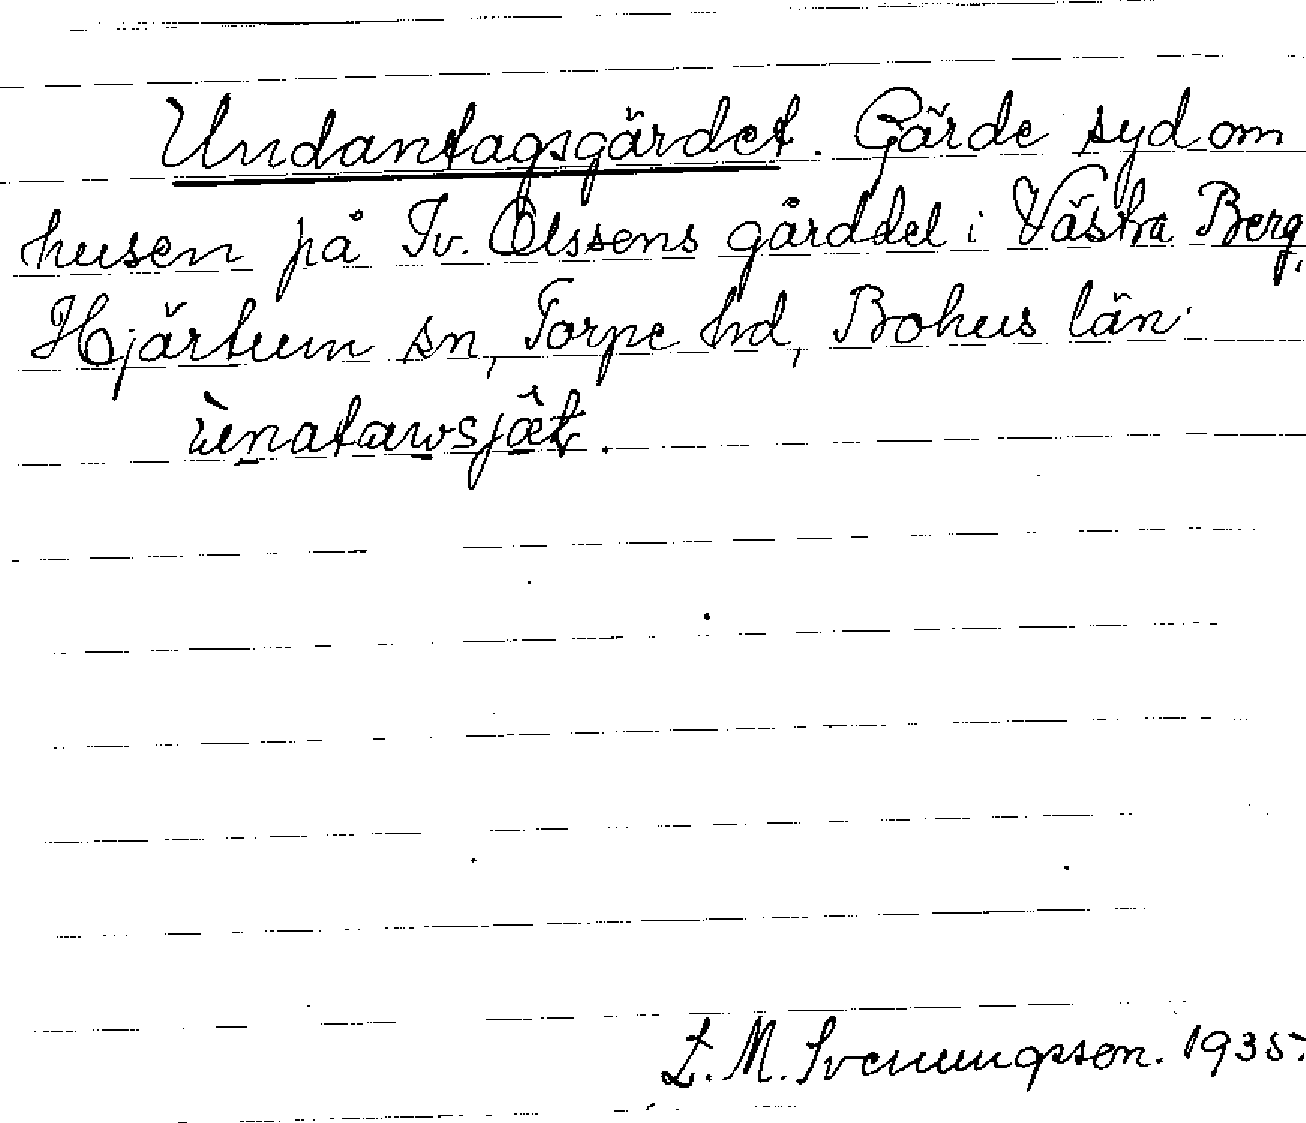 Undantagsgärdet. Gärde syd om
husen på Iv. Olssens gårddel i Västra Berg,
Hjärtum sn, Torpe hd, Bohus län.
ùnatawsjæ̂t.
L. M. Svenungsson. 1935.